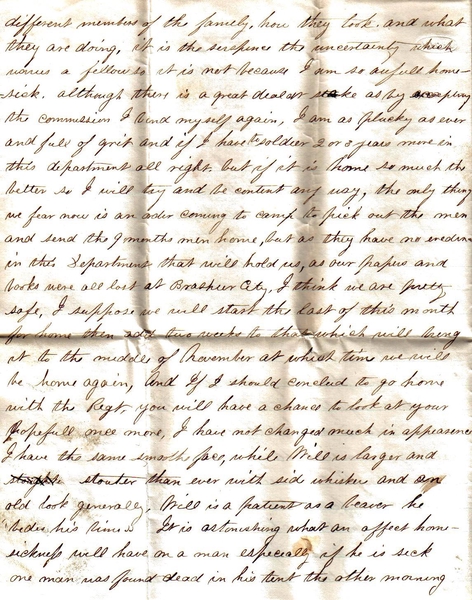 different members of the family, how they look and what
they are doing, it is the suspense the uncertainty which
worries a fellow so it is not because I am so awfull home-
-sick. although there is a great deal at stake as by accepting
the commission I bind myself again, I am as plucky as ever
and full of grit and if I have to soldier 2 or 3 years more in
this department all right. but if it is home so much the
better so I will try and be content any way, the only thing
we fear now is an order coming to camp to pick out the men
and send the 9 months men home, but as they have no
in this Department that will hold us, as our papers and
books were all lost at Brashier City, I think we are pretty
safe, I suppose we will start the last of this month
for home then add two weeks to that which will bring
it to the middle of November at which time we will
be home again, And If I should conclud to go home
with the Regt. you will have a chance to look at your
hopefull once more, I have not changed much in appearence
I have the same smooth face, while Will is larger and
stouter than ever with sid whisker and an
old look generally, Will is a patient as a beaver he
bides his time It is astonishing what an affect home-
sickness will have on a man especially if he is sick
one man was found dead in his tent the other morning